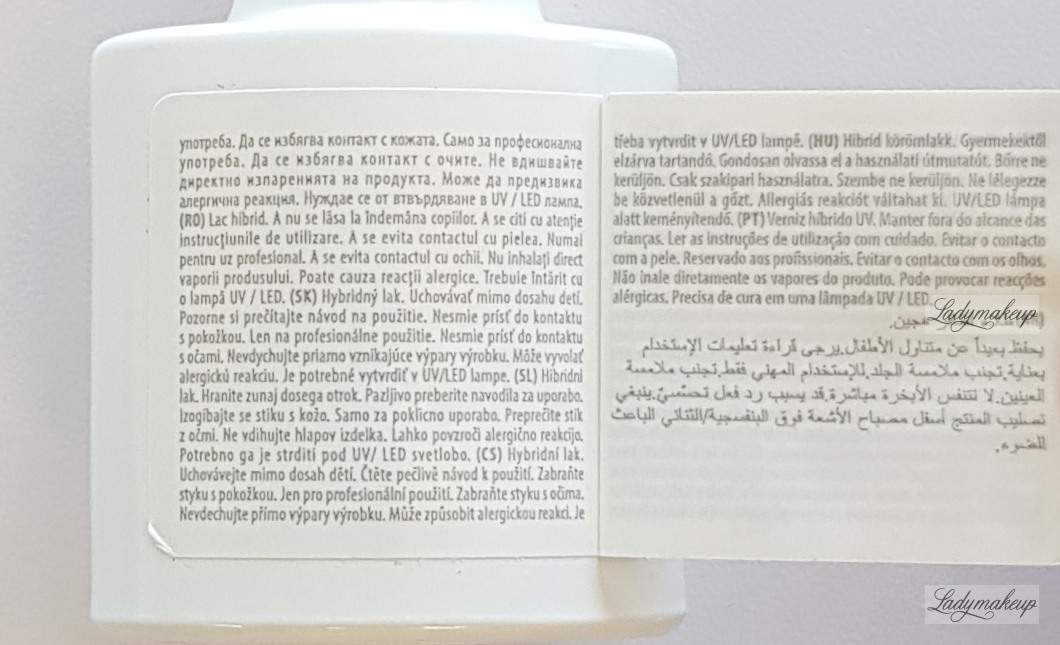 употреба. Да се избягва контакт с кожата. Само за професионална
употреба. Да се избягва контакт с очите. Не вдишвайте
директно изпаренията на продукта. Може да предизвика
алергична реакция. Нуждае се от втвърдяване в UV / LED лампа.
(RO) Lac hibrid. A nu se lăsa la îndemâna copiilor. A se citi cu atenție
instrucțiunile de utilizare. A se evita contactul cu pielea. Numai
pentru uz profesional. A se evita contactul cu ochii. Nu inhalați direct
vaporii produsului. Poate cauza reacții alergice. Trebuie întărit cu
o lampă UV / LED. (SK) Hybridný lak. Uchovávať mimo dosahu detí.
Pozorne si prečítajte návod na použitie. Nesmie prísť do kontaktu
s pokožkou. Len na profesionálne použitie. Nesmie prísť do kontaktu
s očami. Nevdychujte priamo vznikajúce výpary výrobku. Môže vyvolať
alergickú reakciu. Je potrebné vytvrdiť v UV/LED lampe. (SL) Hibridni
lak. Hranite zunaj dosega otrok. Pazljivo preberite navodila za uporabo.
Izogibajte se stiku s kožo. Samo za poklicno uporabo. Preprečite stik
z očmi. Ne vdihujte hlapov izdelka. Lahko povzroči alergično reakcijo.
Potrebno ga je strditi pod UV/ LED svetlobo. (CS) Hybridní lak.
Uchovávejte mimo dosah dětí. Čtěte pečlivě návod k použití. Zabraňte
styku s pokožkou. Jen pro profesionální použití. Zabraňte styku s očima.
Nevdechujte přímo výpary výrobku. Může způsobit alergickou reakci. Je
třeba vytvrdit v UV/LED lampě. (HU) Hibrid körömlakk. Gyermekektől
elzárva tartandó. Gondosan olvassa el a használati útmutatót. Bőrre ne
kerüljön. Csak szakipari használatra. Szembe ne kerüljön. Ne lélegezze
be közvetlenül a gőzt. Allergiás reakciót váltahat ki. UV/LED lámpa
alatt keményítendő. (PT) Verniz híbrido UV. Manter fora do alcance das
crianças. Ler as instruções de utilização com cuidado. Evitar o contacto
com a pele. Reservado aos profissionais. Evitar o contacto com os olhos.
Não inale diretamente os vapores do produto. Pode provocar reacções
alérgicas. Precisa de cura em uma lâmpada UV / LED.
Ladymakeup
هجين.
يحفظ بعيداً عن متناول الأطفال.يرجى قراءة تعليمات الإستخدام
بعناية.تجنب ملامسة الجلد.للإستخدام المهني فقط.تجنب ملامسة
العينين.لا تتنفس الأبخرة مباشرة.قد يسبب رد فعل تحسّسيّ.ينبغي
تصليب المنتج أسفل مصباح الأشعة فوق البنفسجية/الثنائي الباعث
للضوء.
Ladymakeup